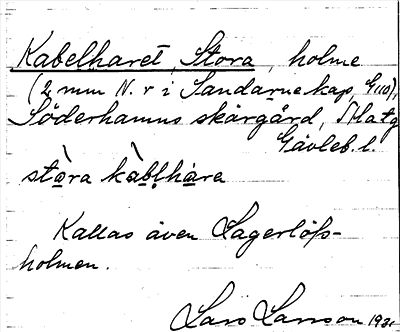 Kabelharet, Stora, holme
(2 mm N. r i Sandarne kap, G110),
Söderhamns skärgård,
Gävleb. l.
stàra kàblhàra
Kallas även Lagerlöfs-
holmen.
Lars Larsson 1931